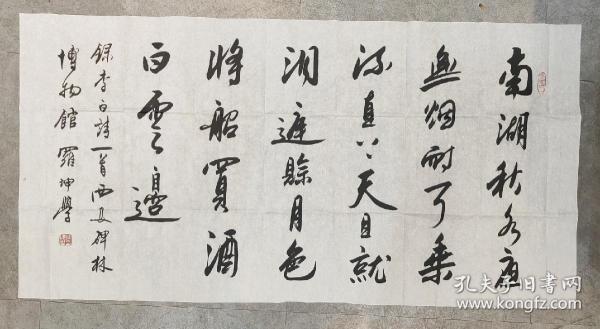 南湖秋水夜
無烟耐可乘
流直上天且就
洞庭賒月色
將船買酒
白雲邊
錄李白詩一首西安碑林
博物館 羅坤學
孔夫子旧书网
www.kongfz.com